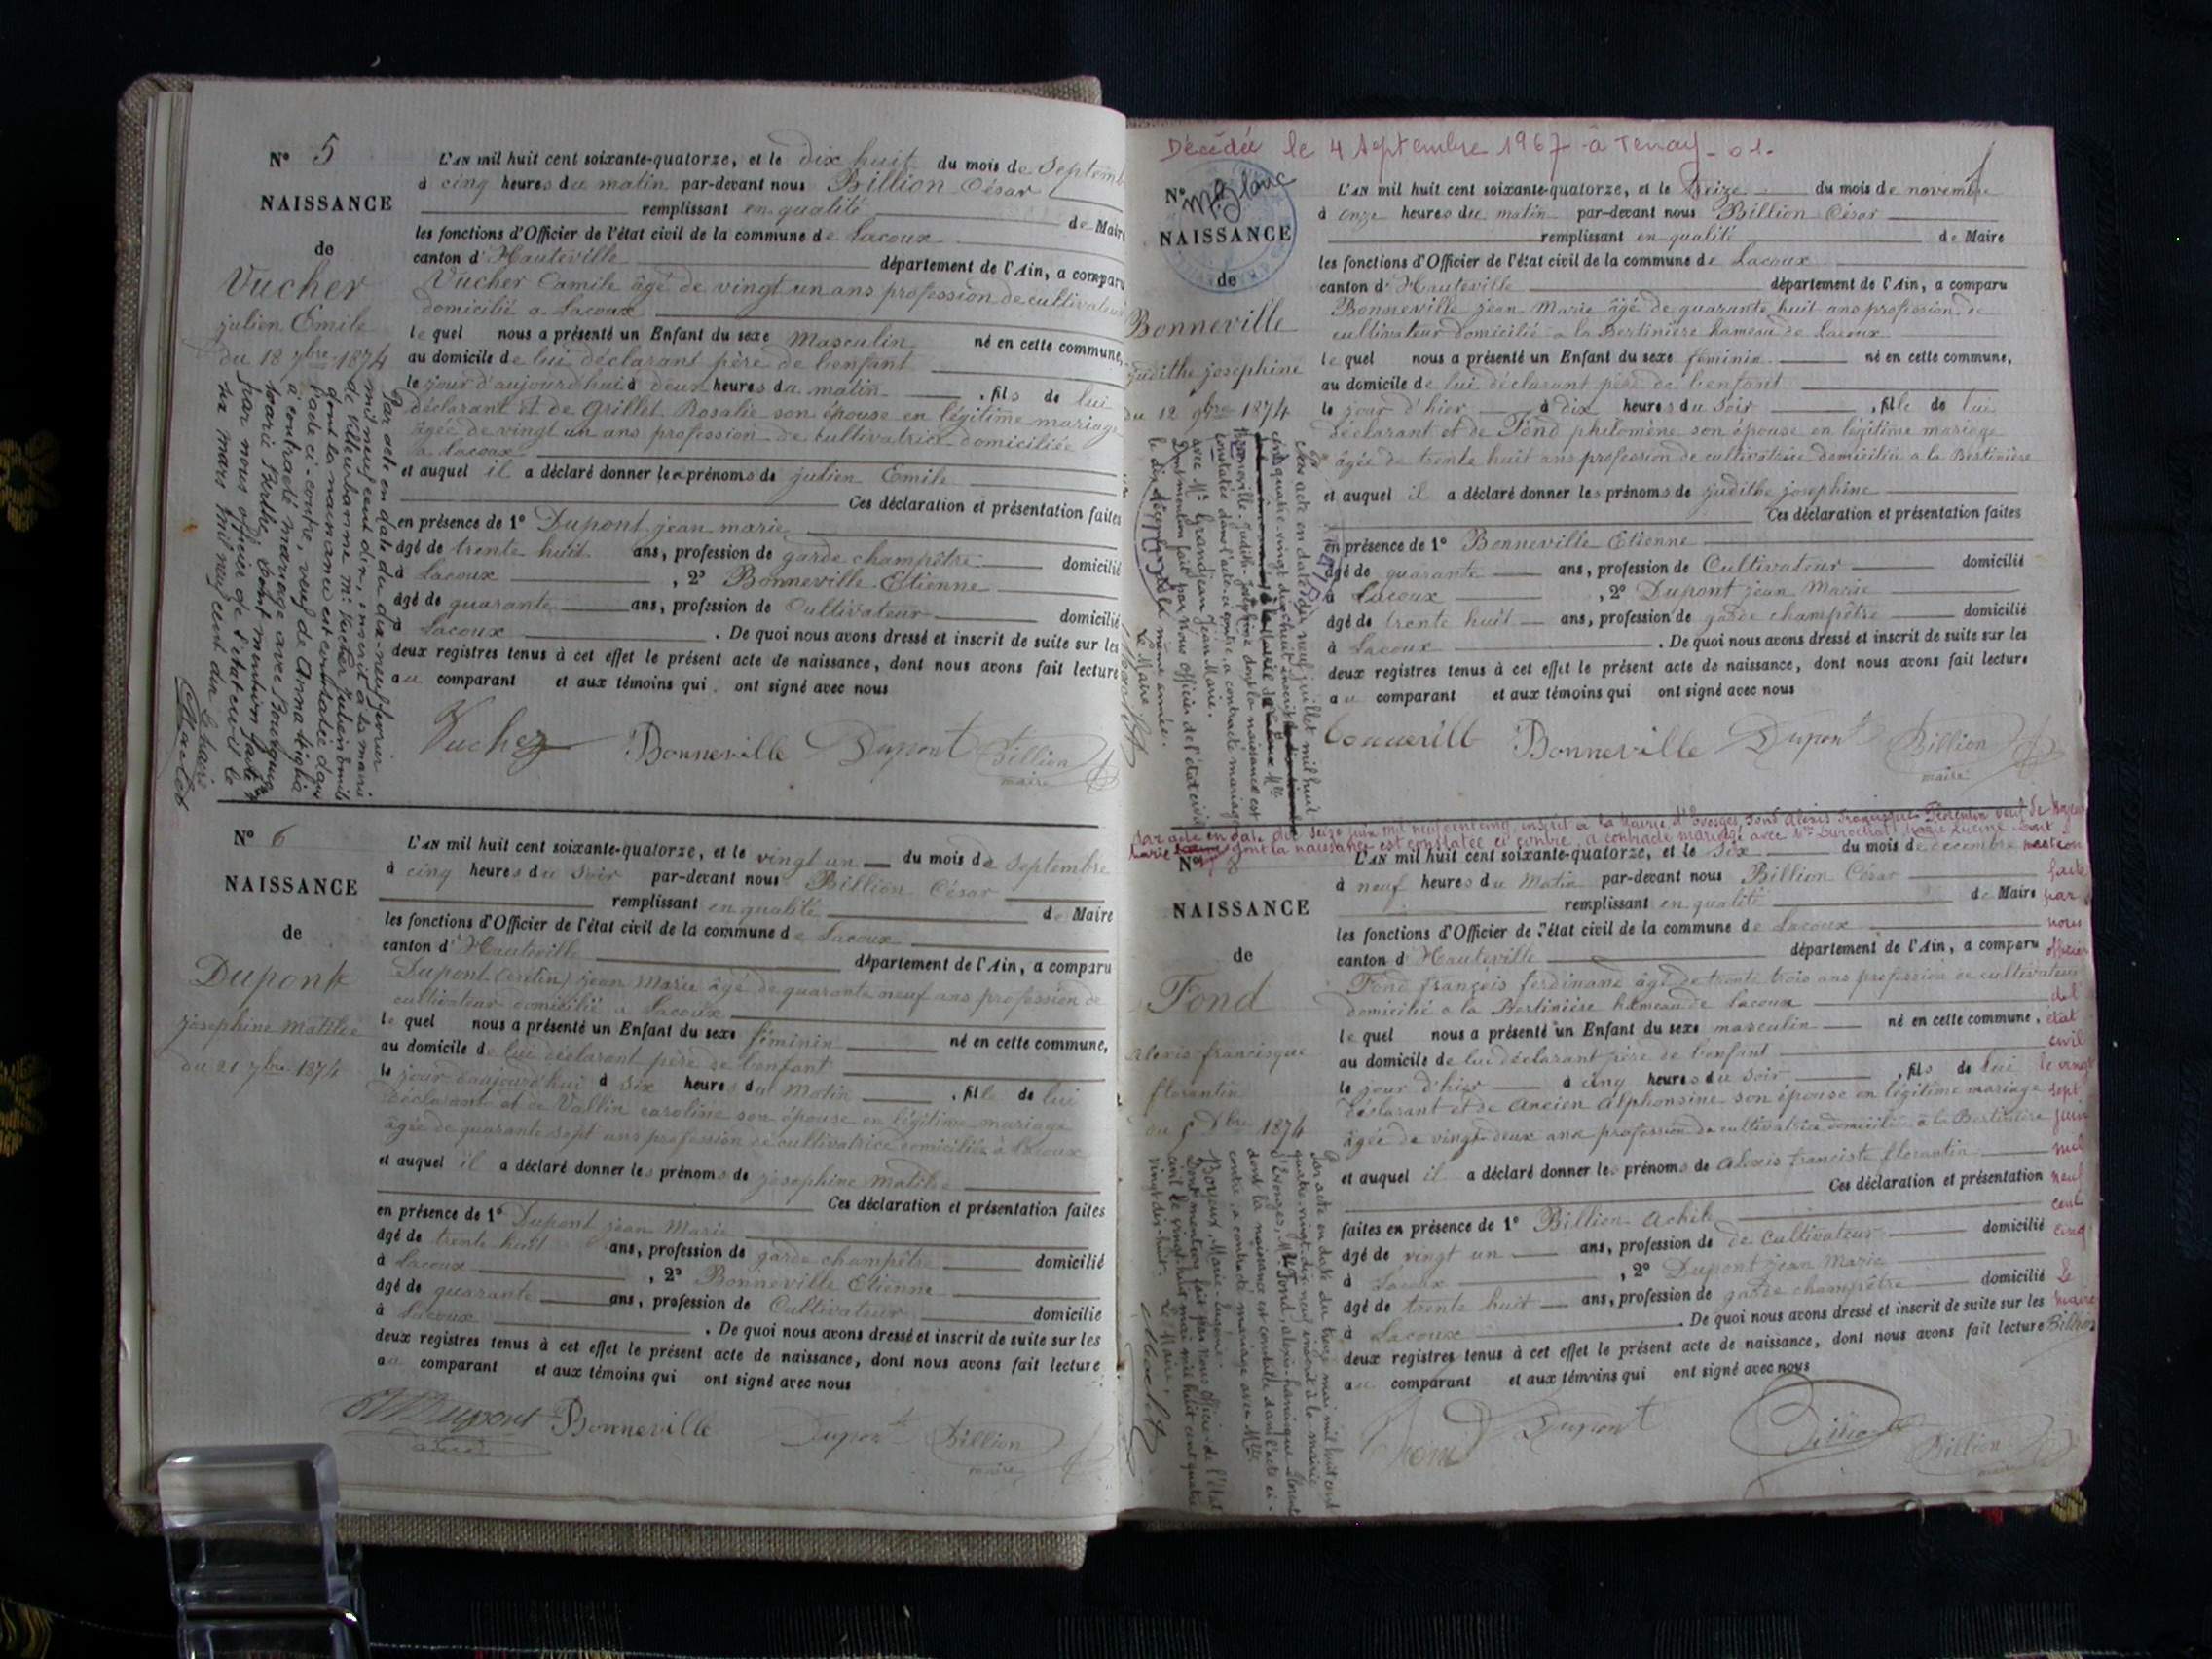 N° 5
NAISSANCE
de
Vucher
julien Emile
du 18 7bre 1874
L'AN mil huit cent soixante-quatorze, et le dix huit du mois de Septemb
à cinq heures du matin par-devant nous Billion César
remplissant en qualité de Maire
les fonctions d'Officier de l'état civil de la commune de Lacoux
canton d'Hauteville département de l'Ain, a comparu
Vucher Camile âgé de vingt un ans profession de cultivateur
domicilié a Lacoux
le quel nous a présenté un Enfant du sexe Masculin né en cette commune,
au domicile de lui déclarant père de l'enfant
le jour d'aujourd'hui à deux heures du matin , fils de lui
déclarant et de Grillet Rosalie son épouse en légitime mariage
âgée de vingt un ans profession de cultivatrice domiciliée
a Lacoux
et auquel il a déclaré donner les prénoms de julien Emile
Ces déclaration et présentation faites
en présence de 1° Dupont jean marie
âgé de trente huit ans, profession de garde champêtre domicilié
à Lacoux , 2° Bonneville Etienne
âgé de quarante ans, profession de Cultivateur domicilié
à Lacoux . De quoi nous avons dressé et inscrit de suite sur les
deux registres tenus à cet effet le présent acte de naissance, dont nous avons fait lecture
au comparant et aux témoins qui ont signé avec nous
Vucher Bonneville Dupont Billion
maire
Par acte en date du dix-neuf février
mil neuf cent dix, inscrit à la mairie
de Villeurbanne Mr Vucher Julien Emile
dont la naissance est constatée dans
l'acte ci-contre, veuf de Anna
à contracté mariage avec
Marie Berthe, dont mention faite
par nous officier de l'état civil le
six mars mil neuf cent dix
Le Maire
N° 6
NAISSANCE
de
Dupont
josephine Matilde
du 21 7bre 1874
L'AN mil huit cent soixante-quatorze, et le vingt un du mois de Septembre
à cinq heures du Soir par-devant nous Billion César
remplissant en qualité de Maire
les fonctions d'Officier de l'état civil de la commune de Lacoux
canton d'Hauteville département de l'Ain, a comparu
Dupont jean Marie âgé de quarante neuf ans profession de
cultivateur domicilié a Lacoux
le quel nous a présenté un Enfant du sexe féminin né en cette commune,
au domicile de lui déclarant père de l'enfant
le jour d'aujourd'hui à Six heures du Matin , fille de lui
déclarant et de Vallin caroline son épouse en légitime mariage
âgée de quarante sept ans profession de cultivatrice domiciliée à Lacoux
et auquel il a déclaré donner les prénoms de josephine Matilde
Ces déclaration et présentation faites
en présence de 1° Dupont jean Marie
âgé de trente huit ans, profession de garde champêtre domicilié
à Lacoux , 2° Bonneville Etienne
âgé de quarante ans, profession de Cultivateur domicilié
à Lacoux . De quoi nous avons dressé et inscrit de suite sur les
deux registres tenus à cet effet le présent acte de naissance, dont nous avons fait lecture
au comparant et aux témoins qui ont signé avec nous
Dupont Bonneville Dupont Billion
maire
Décédée le 4 Septembre 1967 à Tenay - 01.
N°
NAISSANCE
de
Bonneville
judithe josephine
du 12 9bre 1874
L'AN mil huit cent soixante-quatorze, et le treize du mois de novembre
à onze heures du matin par-devant nous Billion César
remplissant en qualité de Maire
les fonctions d'Officier de l'état civil de la commune de Lacoux
canton d'Hauteville département de l'Ain, a comparu
Bonneville jean Marie âgé de quarante huit ans profession de
cultivateur domicilié a la Bertinière hameau de Lacoux
le quel nous a présenté un Enfant du sexe féminin né en cette commune,
au domicile de lui déclarant père de l'enfant
le jour d'hier à dix heures du Soir , fille de lui
déclarant et de Fond philomène son épouse en légitime mariage
âgée de trente huit ans profession de cultivatrice domiciliée a la Bertinière
et auquel il a déclaré donner les prénoms de judithe josephine
Ces déclaration et présentation faites
en présence de 1° Bonneville Etienne
âgé de quarante ans, profession de Cultivateur domicilié
à Lacoux , 2° Dupont jean Marie
âgé de trente huit ans, profession de garde champêtre domicilié
à Lacoux . De quoi nous avons dressé et inscrit de suite sur les
deux registres tenus à cet effet le présent acte de naissance, dont nous avons fait lecture
au comparant et aux témoins qui ont signé avec nous
Bonneville Dupont Billion
maire
Par acte en date du neuf juillet mil huit
cent quatre-vingt-dix-huit inscrit
Mlle
Bonneville Judith Joséphine dont la naissance est
constatée dans l'acte ci-contre, a contracté mariage
avec Mr Grandjean Jean Marie.
Dont mention fait par Nous Officier de l'état civil
le dix même année.
Le Maire
Par acte en date du seize juin mil neuf cent cinq, inscrit à la Mairie d'Evosges, Fond Alexis Francisque Florentin veuf de
Marie dont la naissance est constatée ci contre, a contracté mariage avec
mention
faite
par
nous
officier
de l'
état
civil
le vingt
sept
juin
mil
neuf
cent
cinq
Le
Maire
Billion
N° 8
NAISSANCE
de
Fond
alexis francisque
florentin
du 5 Xbre 1874
L'AN mil huit cent soixante-quatorze, et le Six du mois de décembre
à neuf heures du Matin par-devant nous Billion César
remplissant en qualité de Maire
les fonctions d'Officier de l'état civil de la commune de Lacoux
canton d'Hauteville département de l'Ain, a comparu
Fond françois ferdinand âgé de trente trois ans profession de cultivateur
domicilié a la Bertinière hameau de Lacoux
le quel nous a présenté un Enfant du sexe masculin né en cette commune,
au domicile de lui déclarant père de l'enfant
le jour d'hier à cinq heures du Soir , fils de lui
déclarant et de Ancien Alphonsine son épouse en légitime mariage
âgée de vingt deux ans profession de cultivatrice domiciliée à la Bertinière
et auquel il a déclaré donner les prénoms de Alexis franciste florentin
Ces déclaration et présentation
faites en présence de 1° Billion Achile
âgé de vingt un ans, profession de de Cultivateur domicilié
à Lacoux , 2° Dupont jean Marie
âgé de trente huit ans, profession de garde champêtre domicilié
à Lacoux . De quoi nous avons dressé et inscrit de suite sur les
deux registres tenus à cet effet le présent acte de naissance, dont nous avons fait lecture
au comparant et aux témoins qui ont signé avec nous
Fond Dupont Billion Billion
maire
Par acte en date du treize mai mil huit cent
quatre-vingt-dix-neuf inscrit à la mairie
d'Evosges, Mr Fond, alexis-francisque-florentin
dont la naissance est constatée dans l'acte ci-
contre, a contracté mariage avec Mlle
Boyeux, Marie-Eugénie.
Dont mention fait par Nous Officier de l'Etat
civil le vingt-huit mai mil huit cent quatre
vingt-dix-neuf. Le Maire,